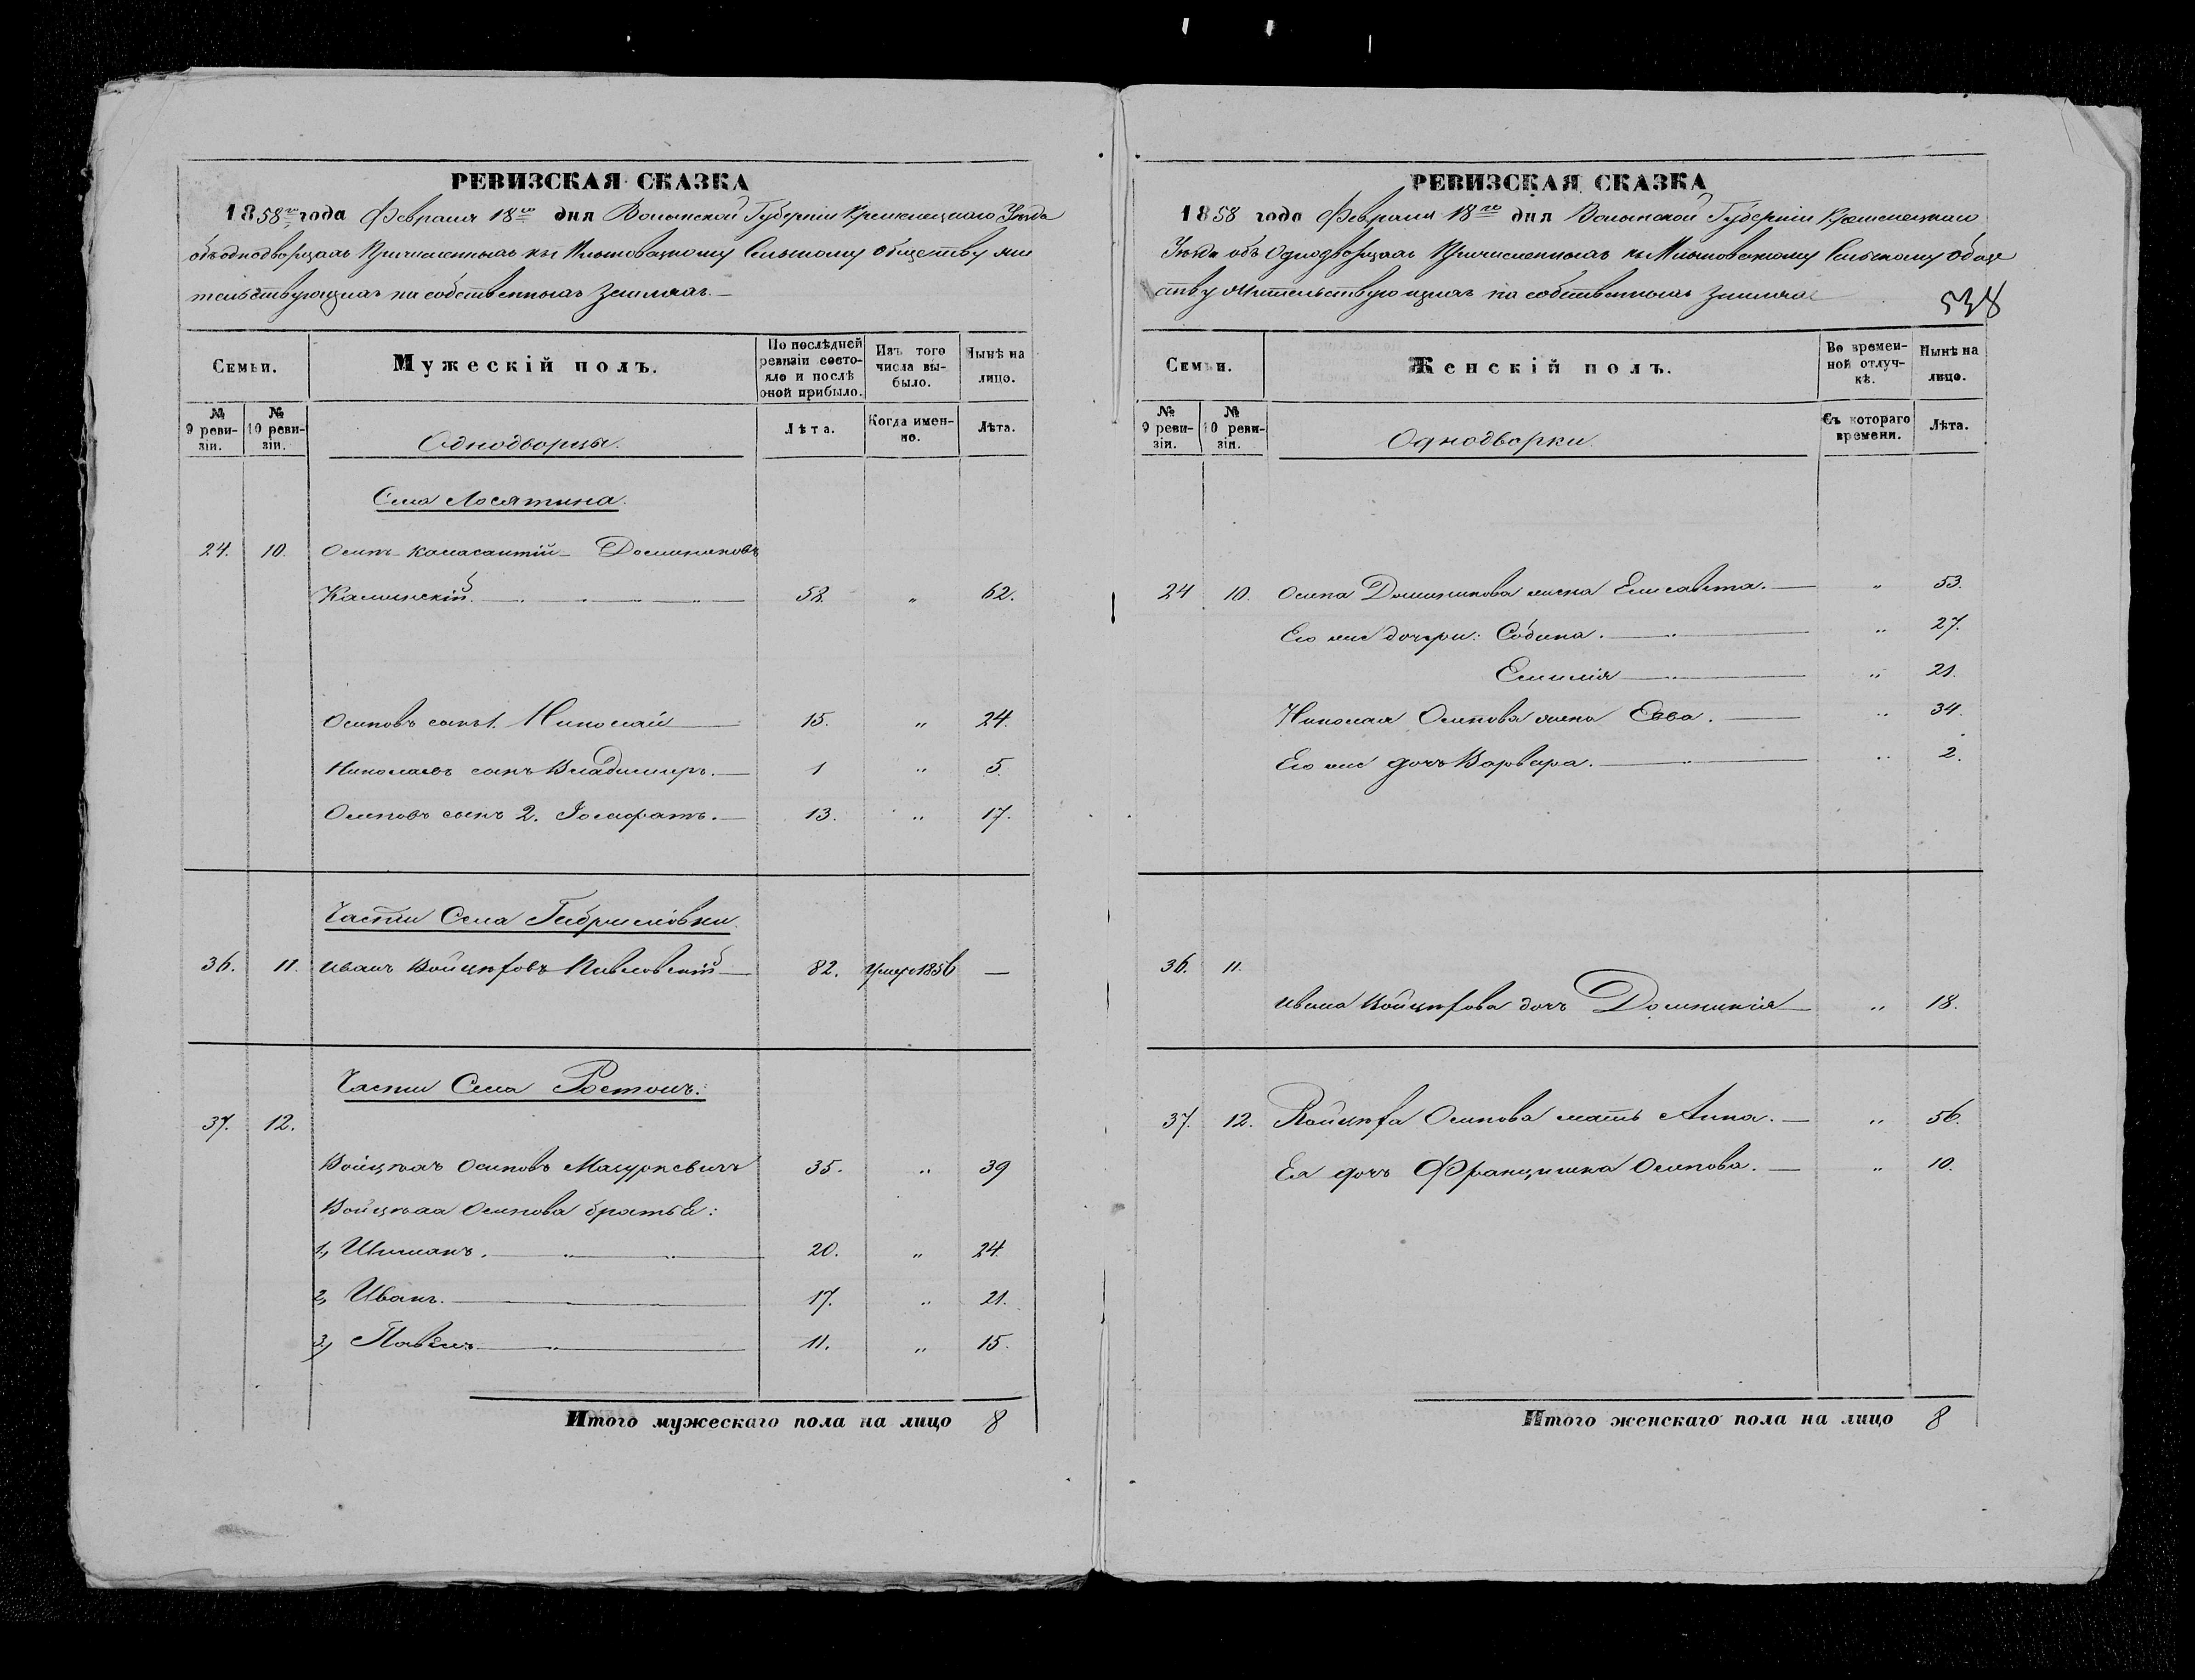 РЕВИЗСКАЯ СКАЗКА
1858го года Февраля 18го дня Волынской Губерніи Кременецкаго Уѣзда
объ однодворцахъ Причисленныхъ къ Сельскому Обществу жи
тельствующихъ на собственныхъ земляхъ.
Семьи.
Мужескій полъ.
По послѣдней ревизіи состояло и послѣ оной прибыло.
Изъ того числа выбыло.
Нынѣ на лицо.
№ 9 ревизіи.
№ 10 ревизіи.
Однодворцы.
Лѣта.
Когда именно.
Лѣта.
Села Лосятина.
24. 10. Осипъ Каласантій Доминиковъ
Калинскій 58. „ 62.
Осиповъ сынъ 1. Николай 15. „ 24.
Николаевъ сынъ Владимиръ. 1 „ 5.
Осиповъ сынъ 2. Іосафатъ. 13. „ 17.
Части Села
36. 11. Иванъ Войцѣховъ 82. Умеръ 1856 —
Части Села Ростокъ.
37. 12.
Войцѣхъ Осиповъ Мазуркевичъ 35. „ 39
Войцѣха Осипова братья:
1, Шиманъ. 20. „ 24.
2, Иванъ. 17. „ 21.
3, Павелъ 11. „ 15.
Итого мужескаго пола на лицо 8
РЕВИЗСКАЯ СКАЗКА
1858 года Февраля 18го дня Волынской Губерніи Кременецкаго
Уѣзда объ Однодворцахъ Причисленныхъ къ Сельскому Обще
ству жительствующихъ на собственныхъ земляхъ
538
Семьи.
Женскій полъ.
Во временной отлучкѣ.
Нынѣ на лицо.
№ 9 ревизіи.
№ 10 ревизіи.
Однодворки.
Съ котораго времени.
Лѣта.
24 10. Осипа Доминикова жена Елисавета. „ 53.
Его же дочери: „ 27.
Емилія „ 21.
Николая Осипова жена Евва. „ 34.
Его же дочь Варвара. „ 2.
36. 11.
Ивана Войцѣхова дочь Доминикія „ 18.
37. 12. Войцѣха Осипова мать Анна. „ 56.
Ея дочь Францишка Осипова. „ 10.
Итого женскаго пола на лицо 8